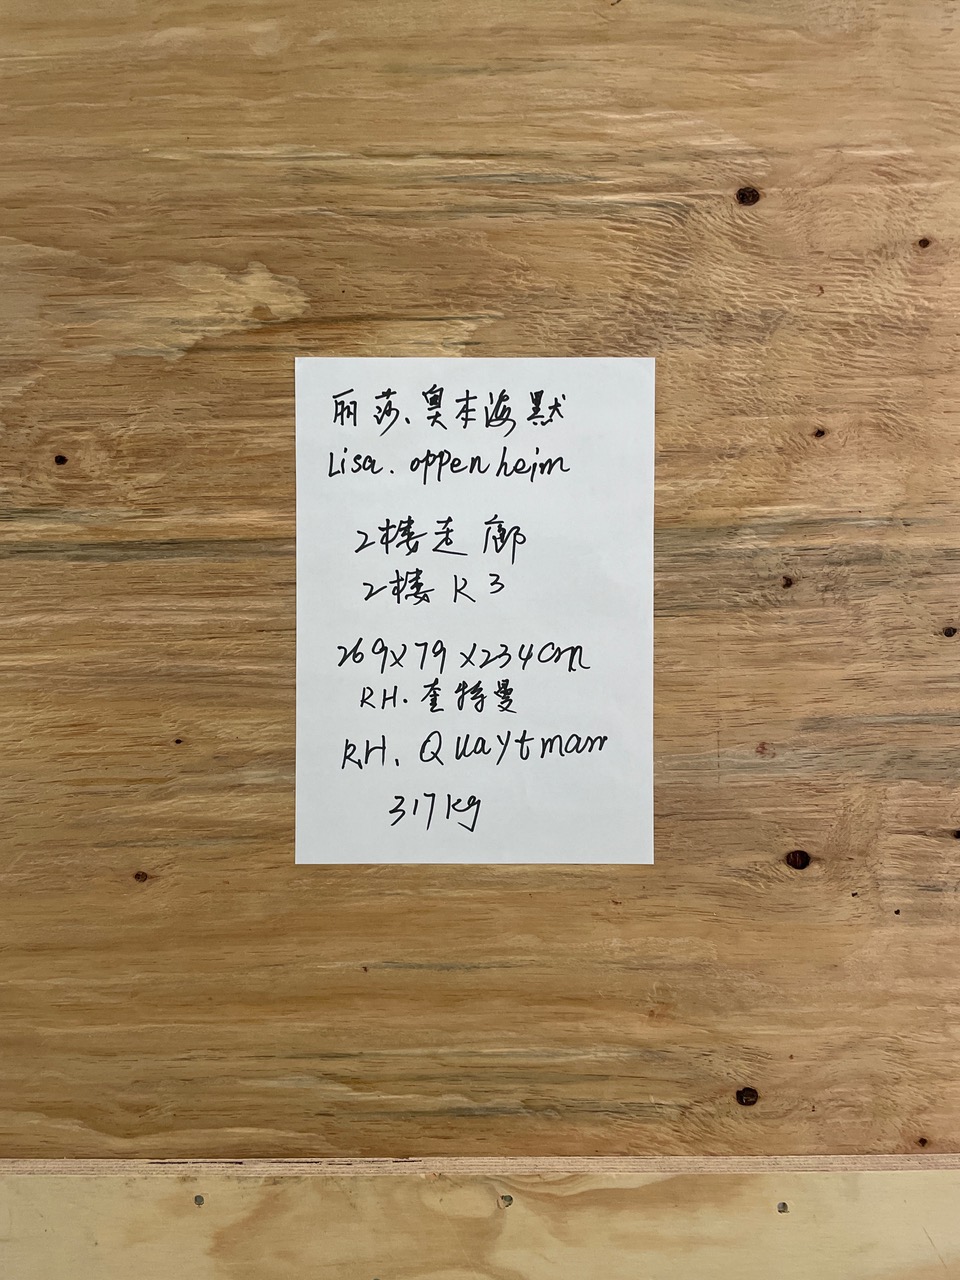 丽莎、奥本海默
Lisa. oppenheim
2楼走廊
2楼 R3
269x79x234cm
RH.奎特曼
R.H. Quaytman
317kg